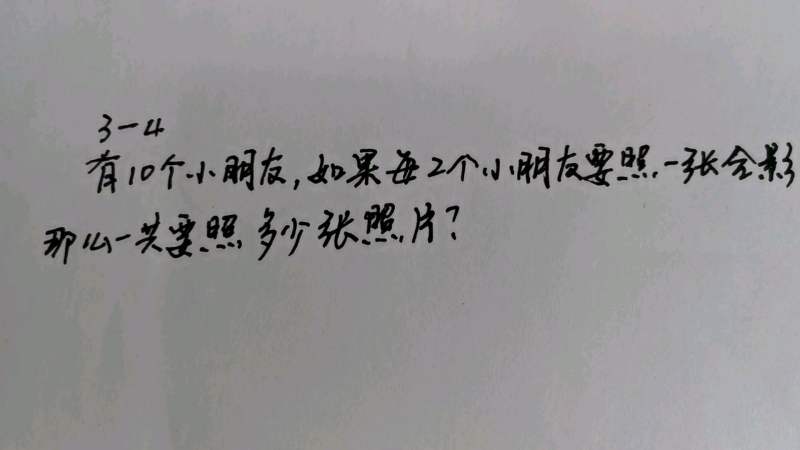 3-4
有10个小朋友,如果每2个小朋友要照一张合影
那么一共要照多少张照片?